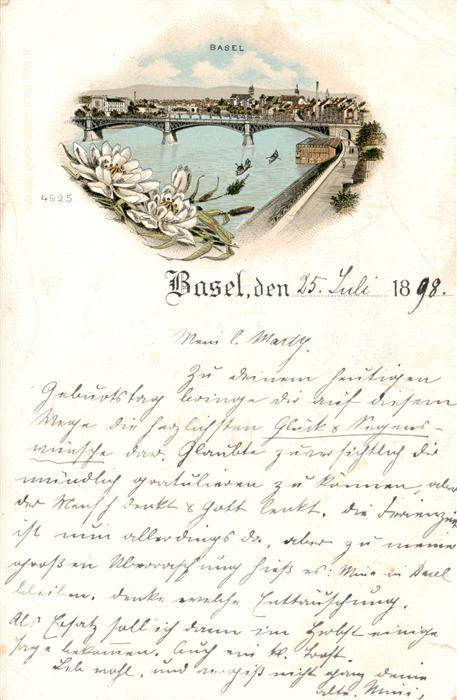 BASEL
4925
Basel, den 25. Juli 1898.
Mein l. Marty.
Zu deinem heutigen
Geburtstag bringe dir auf diesem
Wege die herzlichsten Glück & Segens-
wünsche dar. Glaubte zuversichtlich dir
mündlich gratulieren zu können, aber
der Mensch denkt & Gott lenkt. die Ferienzeit
ist nun allerdings da, aber zu meiner
großen Überraschung hieß es: Mini in Basel
bleiben. denke welche Enttäuschung.
Als Ersatz soll ich dann im Herbst einige
Tage bekommen. Auch ein Trost.
Leb wohl, und vergiß nicht ganz deine
Mini.